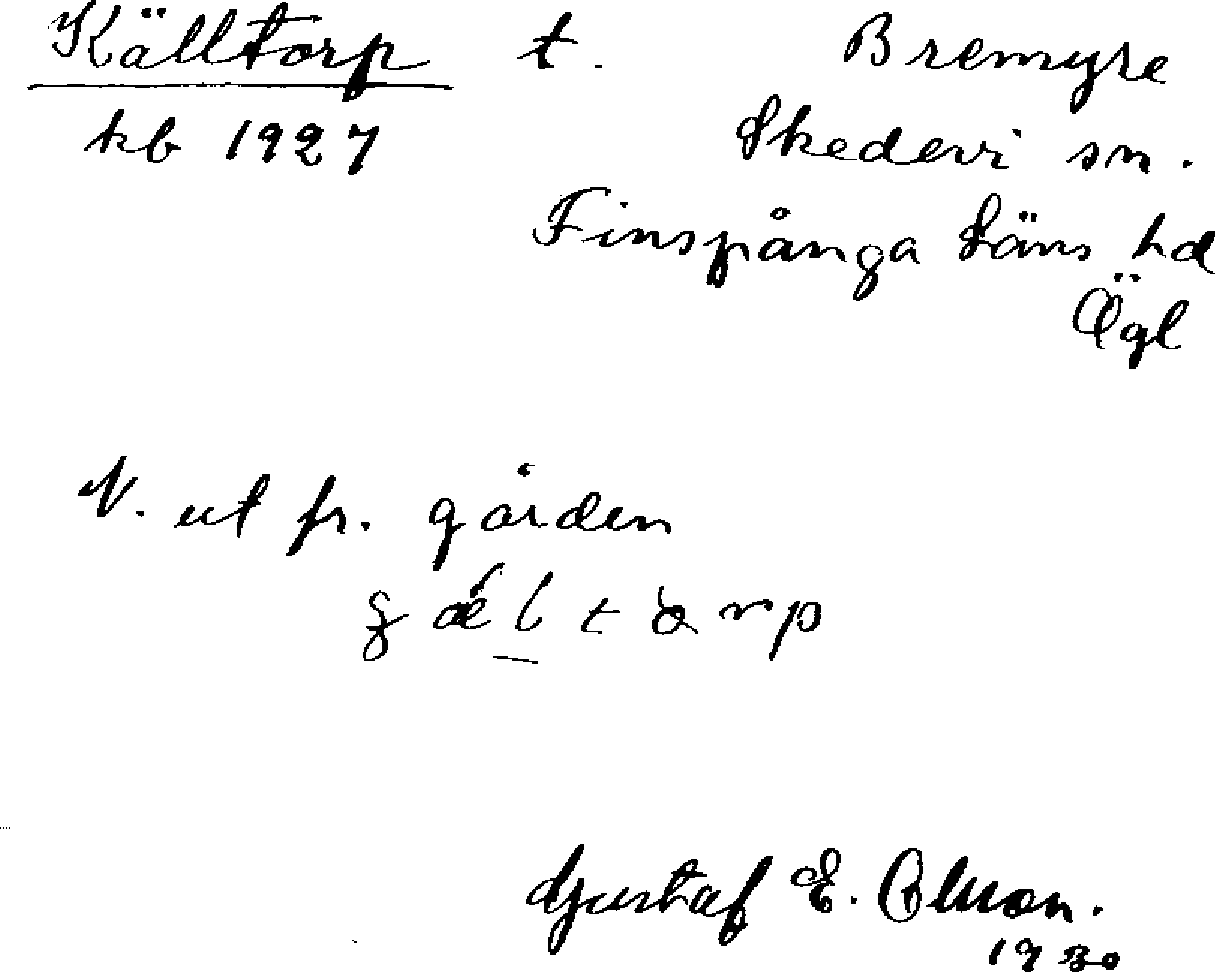 Källtorp t. Bremyre
kb 1927 Skedevi sn.
Finspånga läns hd
Ögl
N. ut fr. gården
Gustaf E. Olsson.
1930